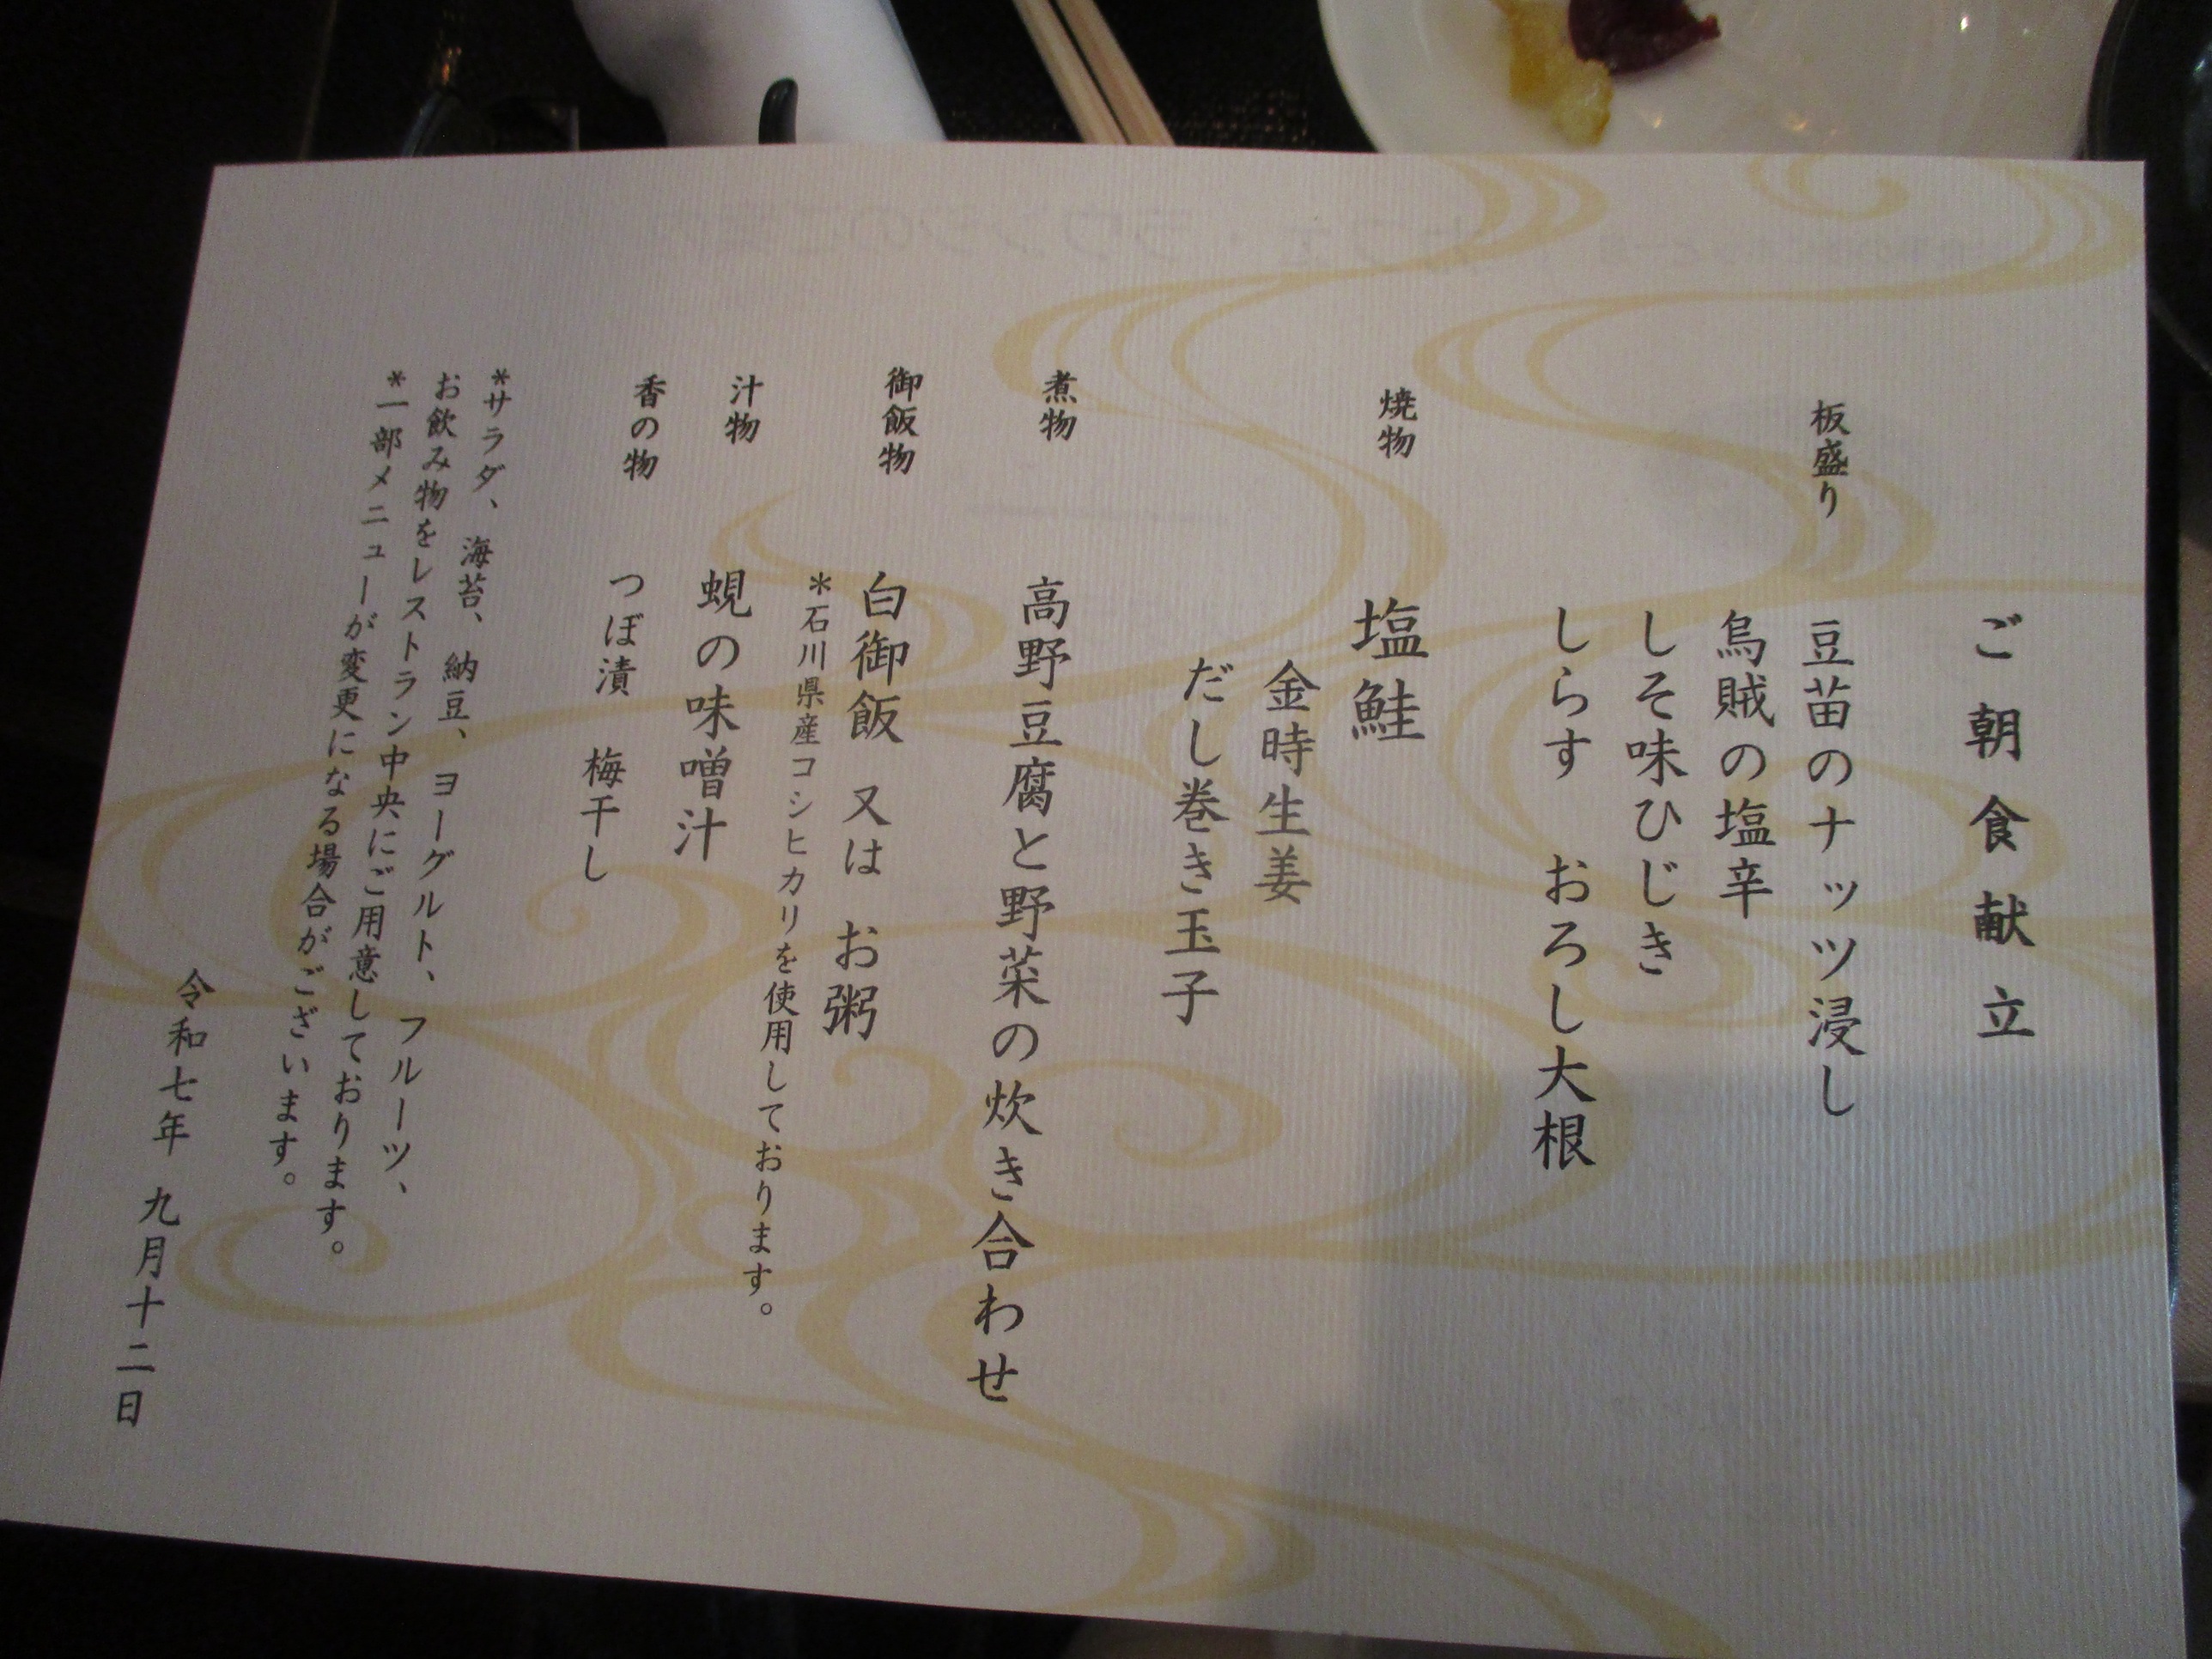 ご朝食献立
板盛り 豆苗のナッツ浸し
烏賊の塩辛
しそ味ひじき
しらす おろし大根
焼物 塩鮭
金時生姜
だし巻き玉子
煮物 高野豆腐と野菜の炊き合わせ
御飯物 白御飯 又は お粥
＊石川県産コシヒカリを使用しております。
汁物 蜆の味噌汁
香の物 つぼ漬 梅干し
＊サラダ、海苔、納豆、ヨーグルト、フルーツ、
お飲み物をレストラン中央にご用意しております。
＊一部メニューが変更になる場合がございます。
令和七年 九月十二日